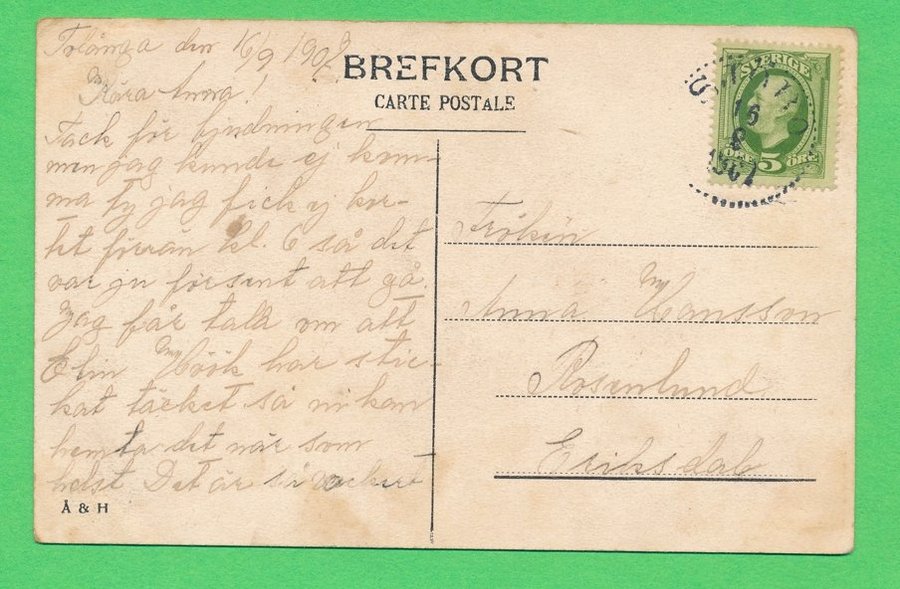 Tolånga den 16/9 1907
BREFKORT
CARTE POSTALE
Kära Anna!
Tack för bjudningen
men jag kunde ej kom-
ma ty jag fick ej kor-
tet förrän kl. 6 så det
var ju försent att gå.
Jag får tala om att
Elin Höök har stic-
kat täcket så ni kan
hemta det när som
helst Det är så vackert
Å & H
SVERIGE
16
9
1907
ÖRE 5 ÖRE
Fröken
Anna Hansson
Rosenlund
Eriksdal